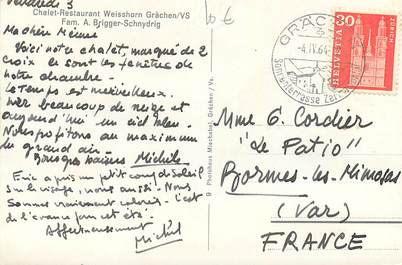 Vendredi 3
Chalet-Restaurant Weisshorn Grächen/VS
Fam. A. Brigger-Schnydrig
Ma chère Mémée
Voici notre chalet, marqué de 2
croix ce sont les fenêtres de
notre chambre.
Le Temps est merveilleux.
Hier beaucoup de neige et
aujourd'hui un ciel bleu.
Nous profitons au maximum
du grand air.
Bonnes baisers Michèle
Eric a pris un petit coup de soleil
sur le visage, nous aussi. Nous
sommes vraiment colorés - c'est
de l'avance pour cet été.
Affectueusement
Michel
10 €
GRÄCHEN
-4.IV.64-
Sonnenterrasse
HELVETIA
30
ZÜRICH
© Photohaus Mischabel, Grächen / Vs.
Mme G. Cordier
"Le Patio"
Bormes-les-Mimosas
(Var)
FRANCE